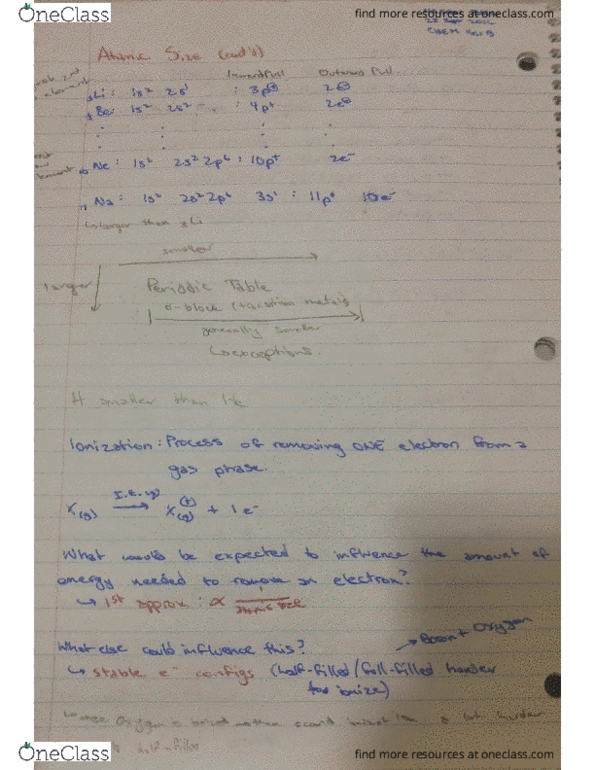 OneClass
find more resources at oneclass.com
Atomic Size (cont'd)
Inward Pull Outward Pull
3Li: 1s² 2s¹ : 3p⊕ 2e⊖
4Be: 1s² 2s² : 4p⁺ 2e⊖
: : : :
Ne: 1s² 2s² 2p⁶ : 10p⁺ 2e⁻
Na: 1s² 2s² 2p⁶ 3s¹ : 11p⁺ 10e⁻
↳ larger than 3Li
smaller
larger
Periodic Table
d-block (transition metals)
generally smaller
↳ exceptions
H smaller than He
Ionization: Process of removing ONE electron from a
gas phase.
X(g) I.E. (g) → X(g)⁺ + 1e⁻
What would be expected to influence the amount of
energy needed to remove an electron?
↳ 1st approx: ∝ 1/atomic size
→ Boron + Oxygen
What else could influence this?
↳ stable e⁻ configs (half-filled/full-filled harder
to ionize)
Oxygen is ionized
half-filled
OneClass
find more resources at oneclass.com